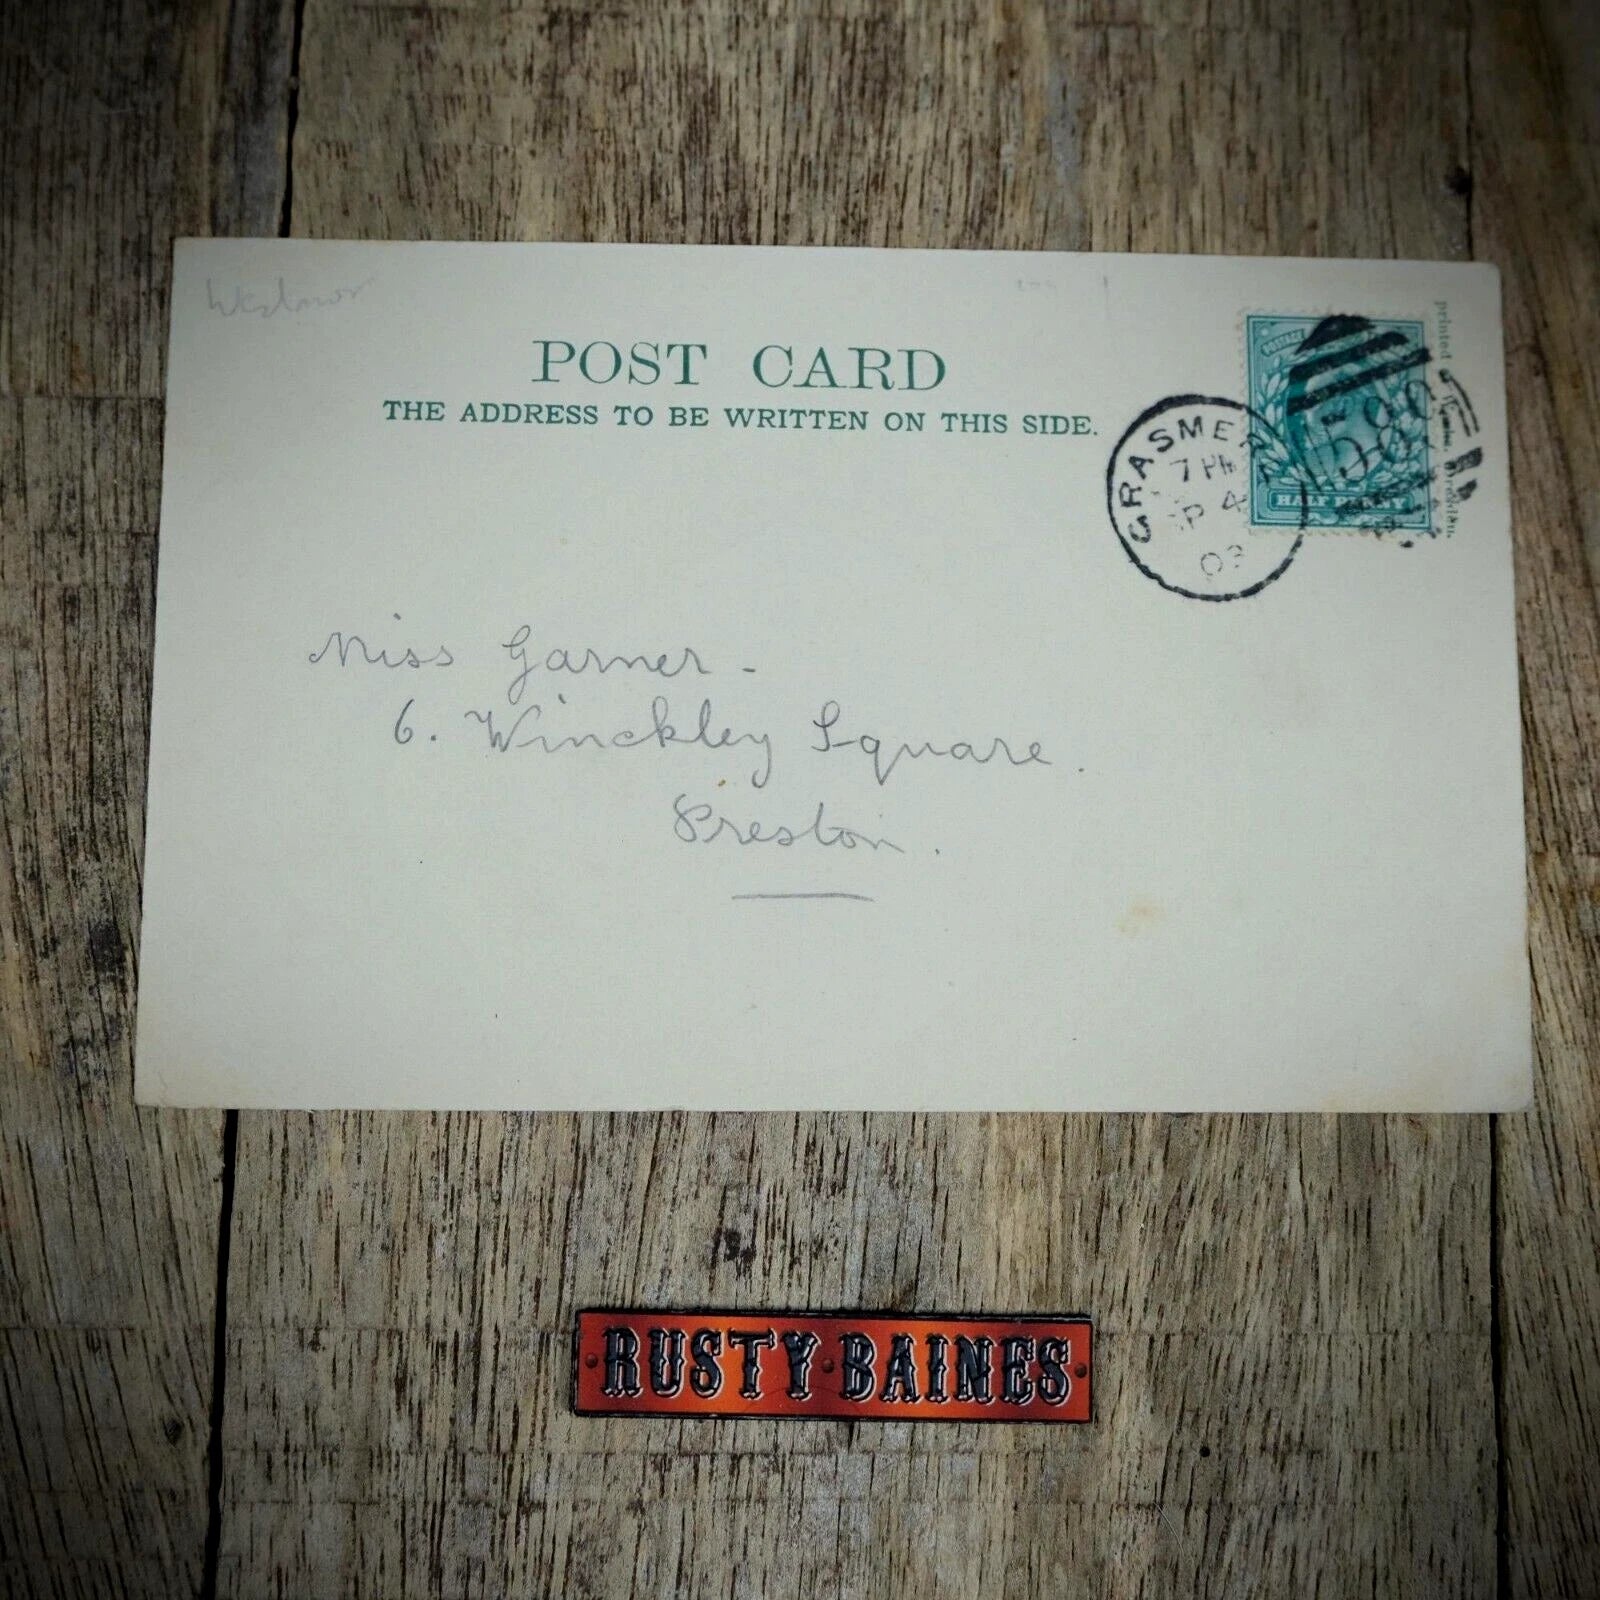 POST CARD
THE ADDRESS TO BE WRITTEN ON THIS SIDE.
printed
GRASMERE
7 PM
SP 4
03
HALF PENNY
Miss Garner -
6. Winckley Square.
Preston.
RUSTY·BAINES